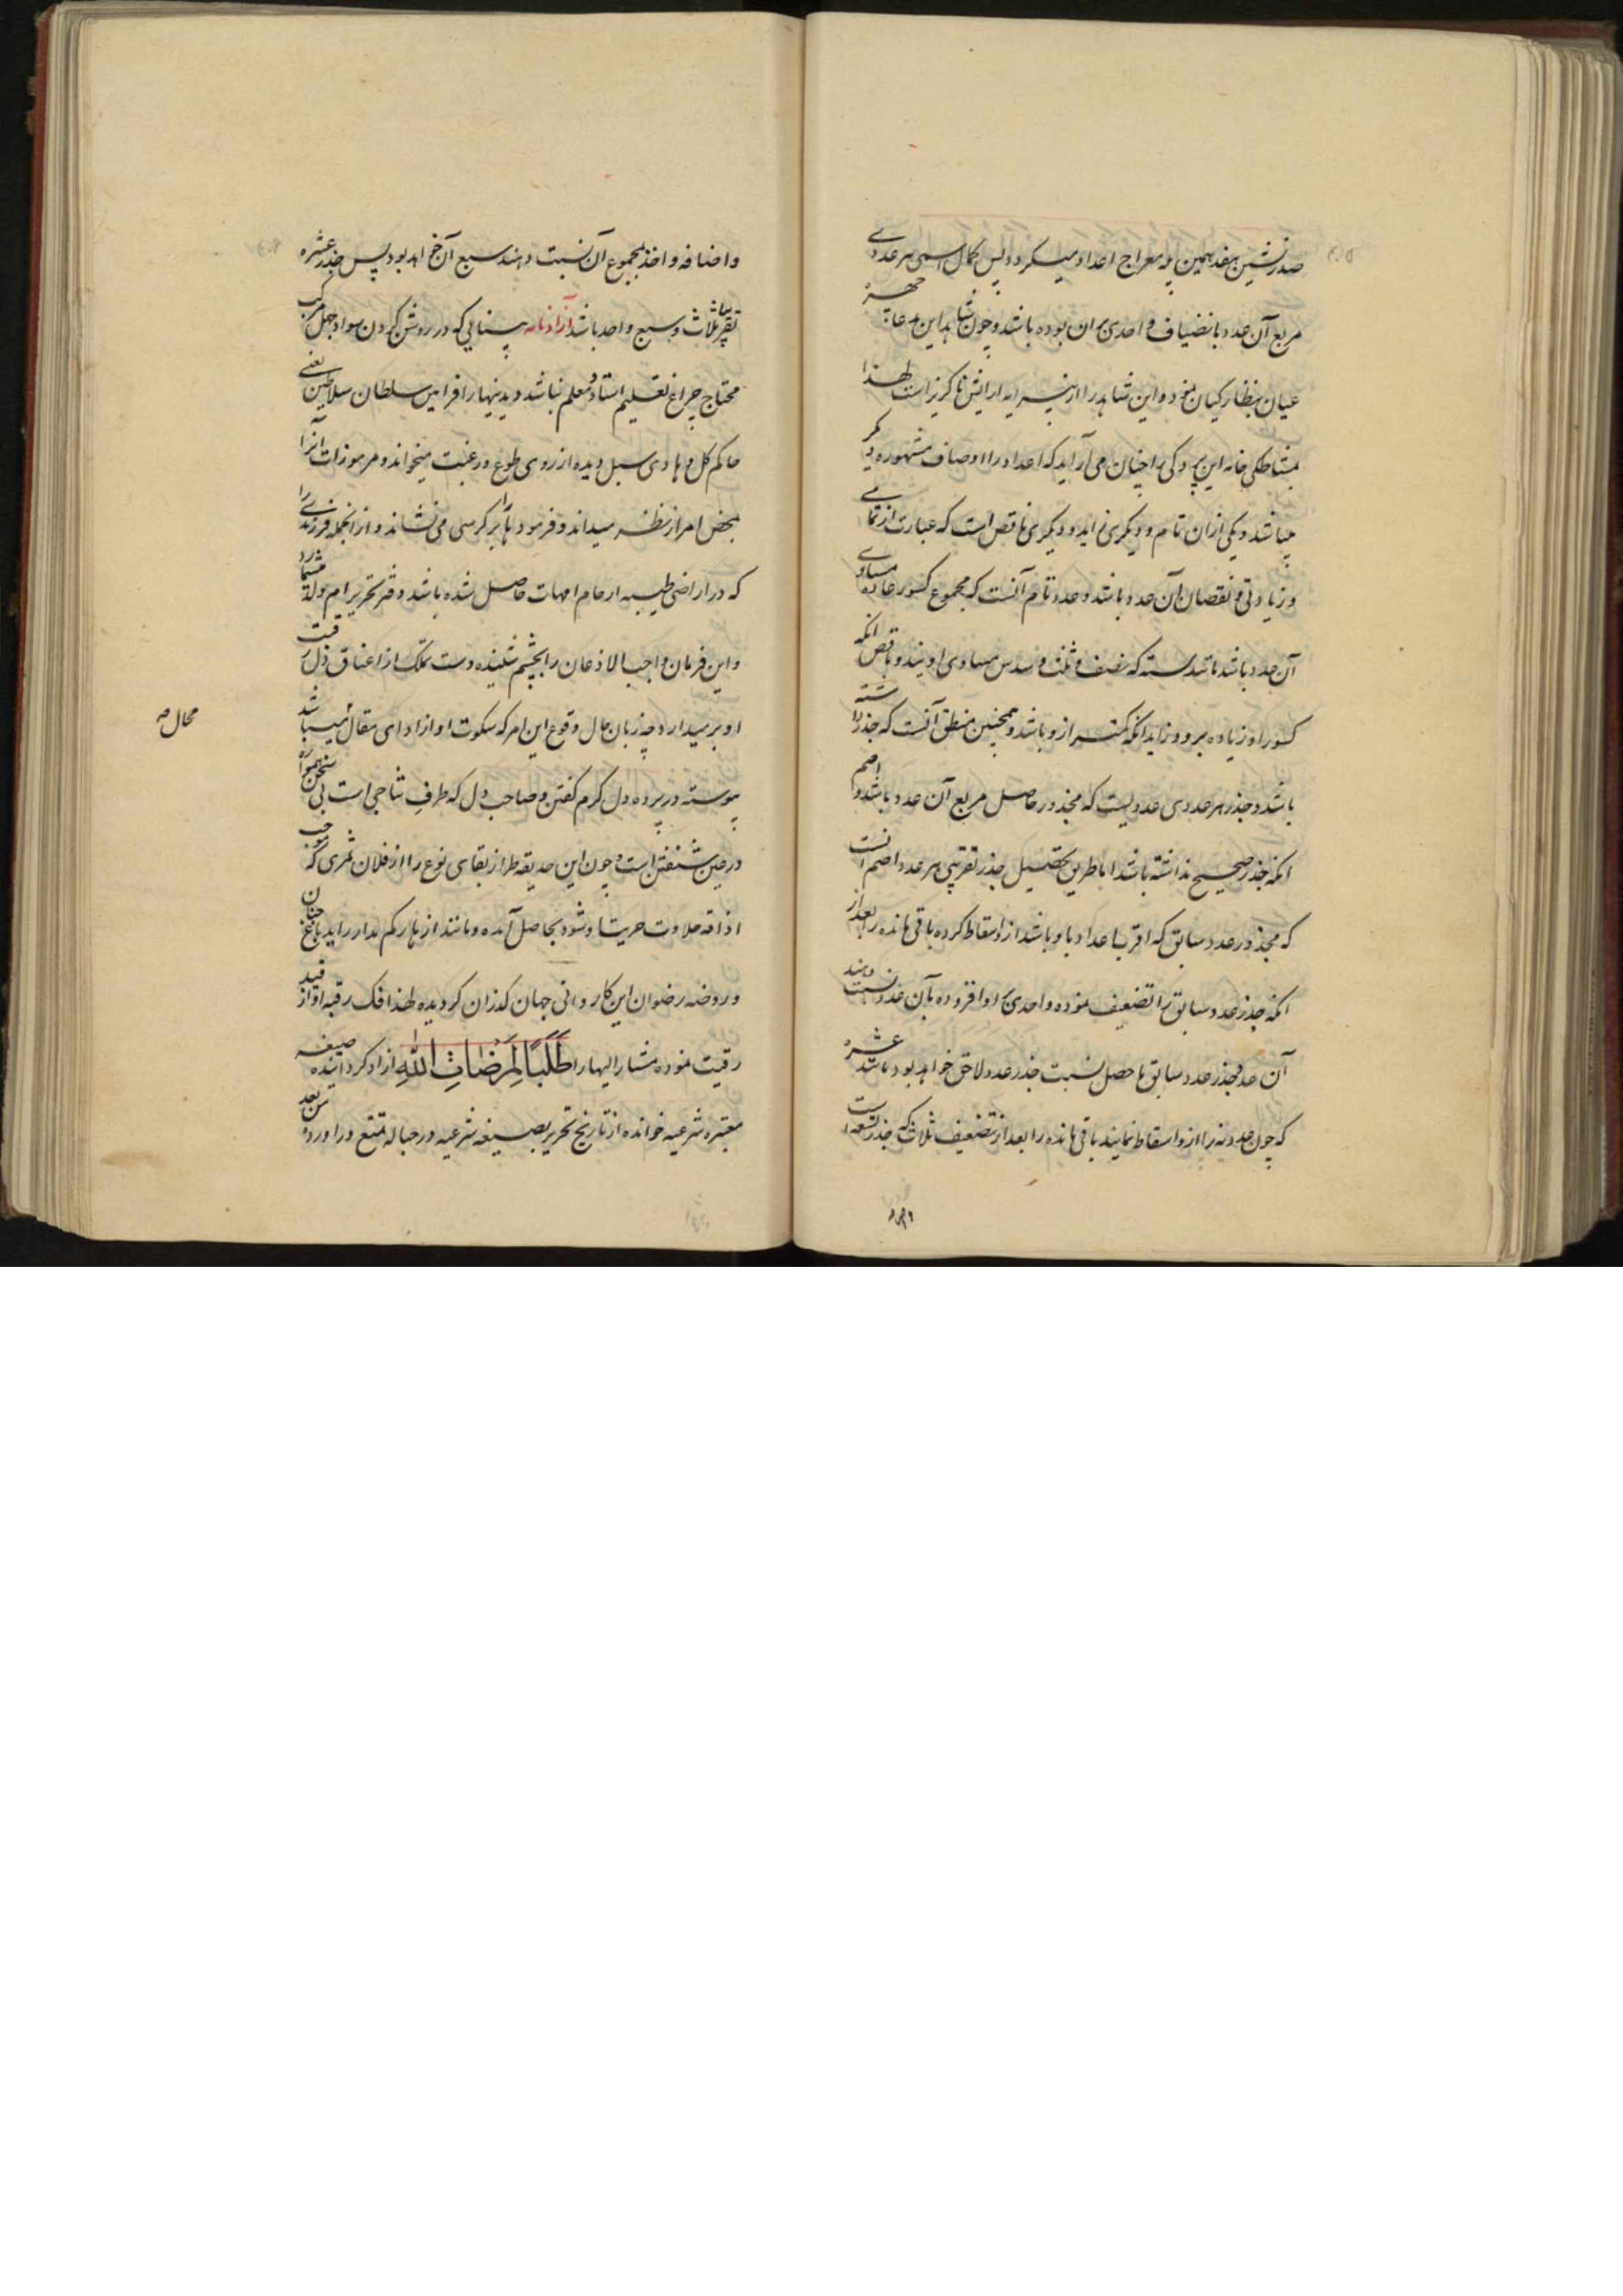 صدرنشین هفدهمین پله معراج اعداد میگردد پس کمال اسمی هر عددی
مربع آن عدد بانضیاف واحدی بران بوده باشد و چون شاهد این مدعا چهره
عیان بنظارکیان نمود و این شاهد را از پیرایه آرایش ناگزیر است لهذا
بمشاطگی خامه این پردگی را چنان می آراید که اعداد را اوصاف مشهوره دیگر
میباشد و یکی ازان تام و دیگری زاید و دیگری ناقص است که عبارت از تمامی
و زیادتی و نقصان آن عدد باشد و عدد تام آنست که مجموع کسور عاده مساوی
آن عدد باشد مانند سته که نصف و ثلث و سدس مساوی اویند و ناقص انکه
کسور او زیاده برو و زاید انکه کمتر ازو باشد و همچنین منطق آنست که جذر داشته
باشد و جذر هر عددی عددیست که مجذور حاصل مربع آن عدد باشد و اصم
انکه جذر صحیح نداشته باشد اما طریق تحصیل جذر تقریبی هر عدد اصم انست
که مجذور عدد سابق که اقرب اعداد باو باشد ازو اسقاط کرده باقی مانده را بعد از
انکه جذر عدد سابق را تضعیف نموده واحدی بر او افزوده بآن عدد نسبت دهند
آن عدد بجذر عدد سابق ما حصل نسبت جذر عدد لاحق خواهد بود مانند عشره
که چون عدد نه را ازو اسقاط نمایند باقی مانده را بعد از تضعیف ثلاث که جذر تسعه است
واضافه
واضافه واحد بمجموع آن نسبت دهند سبع آن خواهد بود پس جذر عشره
تقریبا ثلاث و سبع واحد باشد آزادنامه بینایی که در روشن کردن سواد جهل مرکب
محتاج چراغ تعلیم استاد و معلم نباشد و بدینها را فرامین سلطان سلاطین یعنی
حاکم کل و هادی سبل دیده از روی طوع و رغبت میخواند و مرموزات آنرا
بمحض امراز نظر میداند و فرموده را بر کرسی می نشاند و از انجمله فرزندی را
که در اراضی طیبه ارحام امهات حاصل شده باشد دفتر تحریر ام ولد میشمارد
و این فرمان واجب الاذعان را بچشم شنیده دست تملک از اعناق ذل رقیت
او برمیدارد چه زبان حال وقوع این امر که سکوت او از ادای مقال میباشد
محال صه
پیوسته در پرده دل گرم گفتن و صاحب دل که طرف تناجی است بی سخن همواره
در عین شنفتن است و چون این حدیقه طراز بقای نوع را از فلان ثمری که موجب
اذاقه حلاوت حریت او شود بحاصل آمده و مانند ازهار کم مدار راید باغ جنان
و روضه رضوان این کاروانی جهان گذران گردیده لهذا فک رقبه او از قید
رقیت نموده مشار الیها را طَلَبًا لِمَرْضَاتِ اللهِ آزاد گردانیده صیغه
معتبره شرعیه خوانده از تاریخ تحریر بصیغه شرعیه در حباله تمتع درآورد من بعد